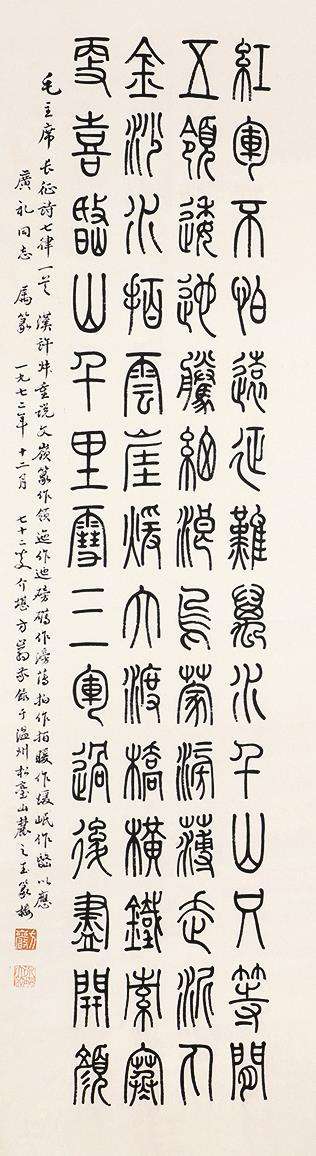 紅軍不怕遠征難萬水千山只等閒
五領逶迆騰細浪烏蒙滂薄走泥丸
金沙水拍雲崖煖大渡橋橫鐵索寒
更喜岷山千里雪三軍過後盡開顏
毛主席長征詩七律一首 漢許叔重説文嶺篆作領 作 作滂薄拍作 暖作煖岷作 以應
廣礼同志 属篆 一九七二年十二月 七十二叟介堪方 于温州松臺山麓之玉篆樓